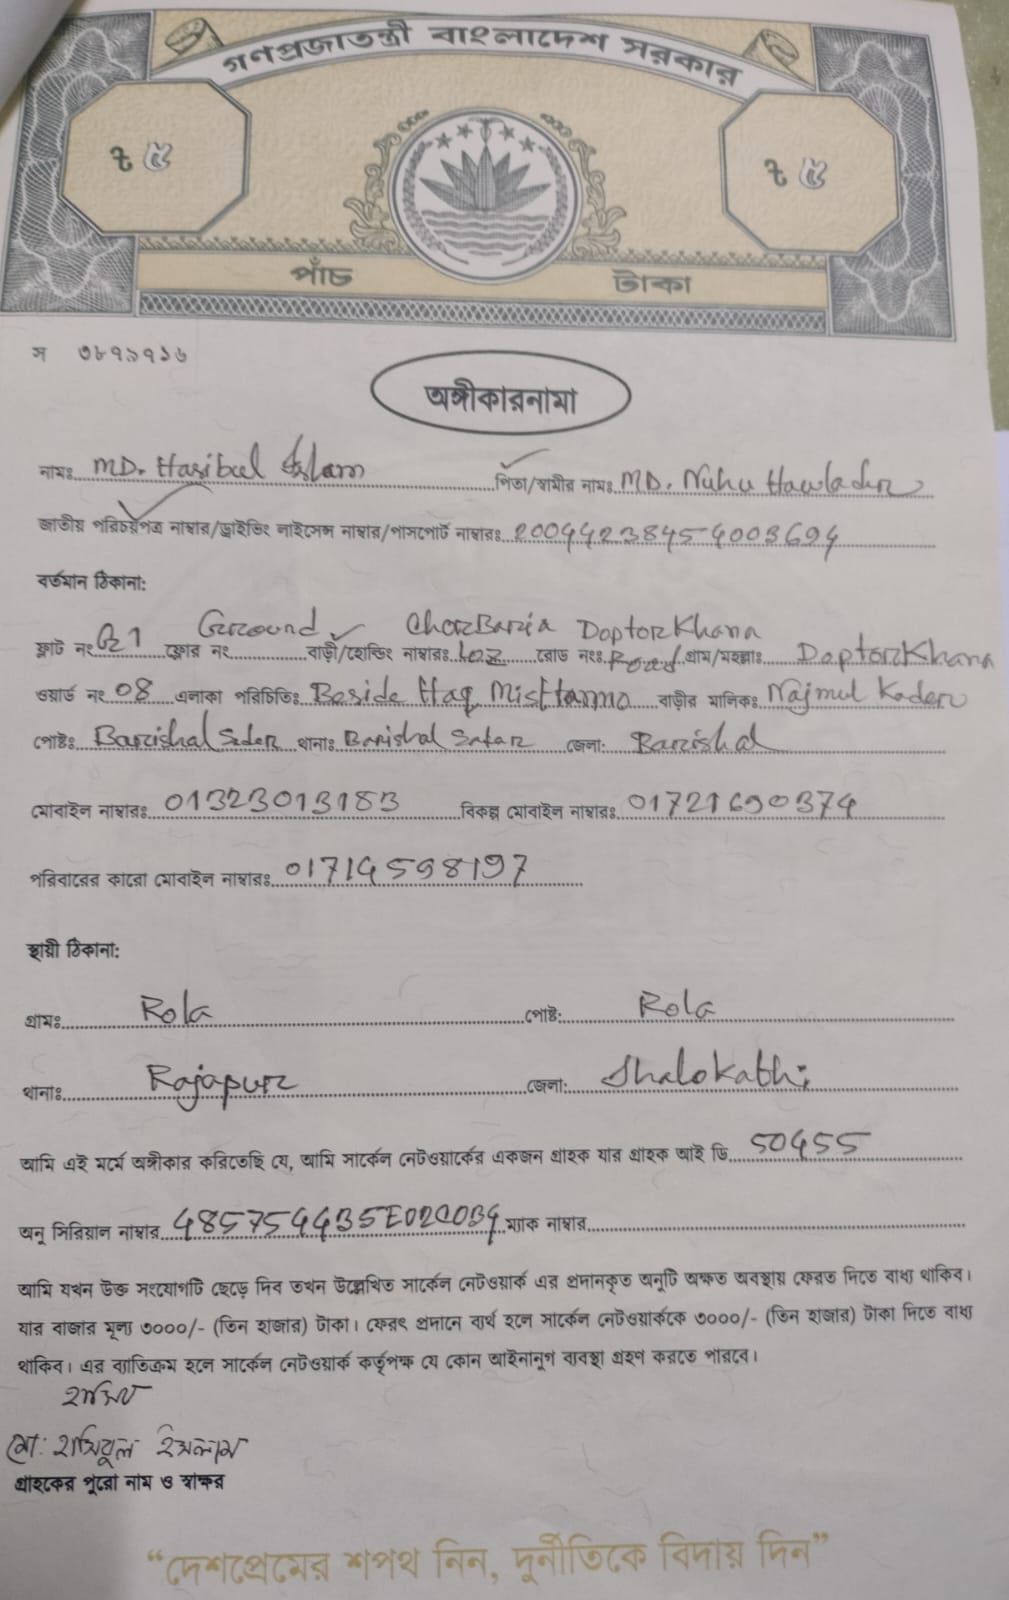 গণপ্রজাতন্ত্রী বাংলাদেশ সরকার
৳ ৫ ৳ ৫
পাঁচ টাকা
স ৩৮৭৯৭১৬
অঙ্গীকারনামা
নামঃ MD. Hasibul Islam পিতা/স্বামীর নামঃ MD. Nuhu Hawlader
জাতীয় পরিচয়পত্র নাম্বার/ড্রাইভিং লাইসেন্স নাম্বার/পাসপোর্ট নাম্বারঃ 20044238454003694
বর্তমান ঠিকানা:
ফ্লাট নং 021 ফ্লোর নং Ground বাড়ী/হোল্ডিং নাম্বারঃ রোড নংঃ CharBaria DoptorKhana Road গ্রাম/মহল্লাঃ DoptorKhana
ওয়ার্ড নং 08 এলাকা পরিচিতিঃ Beside Haq বাড়ীর মালিকঃ Najmul Kader
পোষ্টঃ Barishal Sadar থানাঃ Barishal Sadar জেলা: Barishal
মোবাইল নাম্বারঃ 01323013183 বিকল্প মোবাইল নাম্বারঃ 01721690374
পরিবারের কারো মোবাইল নাম্বারঃ 01714598197
স্থায়ী ঠিকানা:
গ্রামঃ Rola পোষ্ট: Rola
থানাঃ Rajapur জেলা: Jhalokathi
আমি এই মর্মে অঙ্গীকার করিতেছি যে, আমি সার্কেল নেটওয়ার্কের একজন গ্রাহক যার গ্রাহক আই ডি 50455
অনু সিরিয়াল নাম্বার 485754435E020034 ম্যাক নাম্বার
আমি যখন উক্ত সংযোগটি ছেড়ে দিব তখন উল্লেখিত সার্কেল নেটওয়ার্ক এর প্রদানকৃত অনুটি অক্ষত অবস্থায় ফেরত দিতে বাধ্য থাকিব।
যার বাজার মূল্য ৩০০০/- (তিন হাজার) টাকা। ফেরৎ প্রদানে ব্যর্থ হলে সার্কেল নেটওয়ার্ককে ৩০০০/- (তিন হাজার) টাকা দিতে বাধ্য
থাকিব। এর ব্যাতিক্রম হলে সার্কেল নেটওয়ার্ক কর্তৃপক্ষ যে কোন আইনানুগ ব্যবস্থা গ্রহণ করতে পারবে।
হাসিব
মো: হাসিবুল ইসলাম
গ্রাহকের পুরো নাম ও স্বাক্ষর
“দেশপ্রেমের শপথ নিন, দুর্নীতিকে বিদায় দিন”